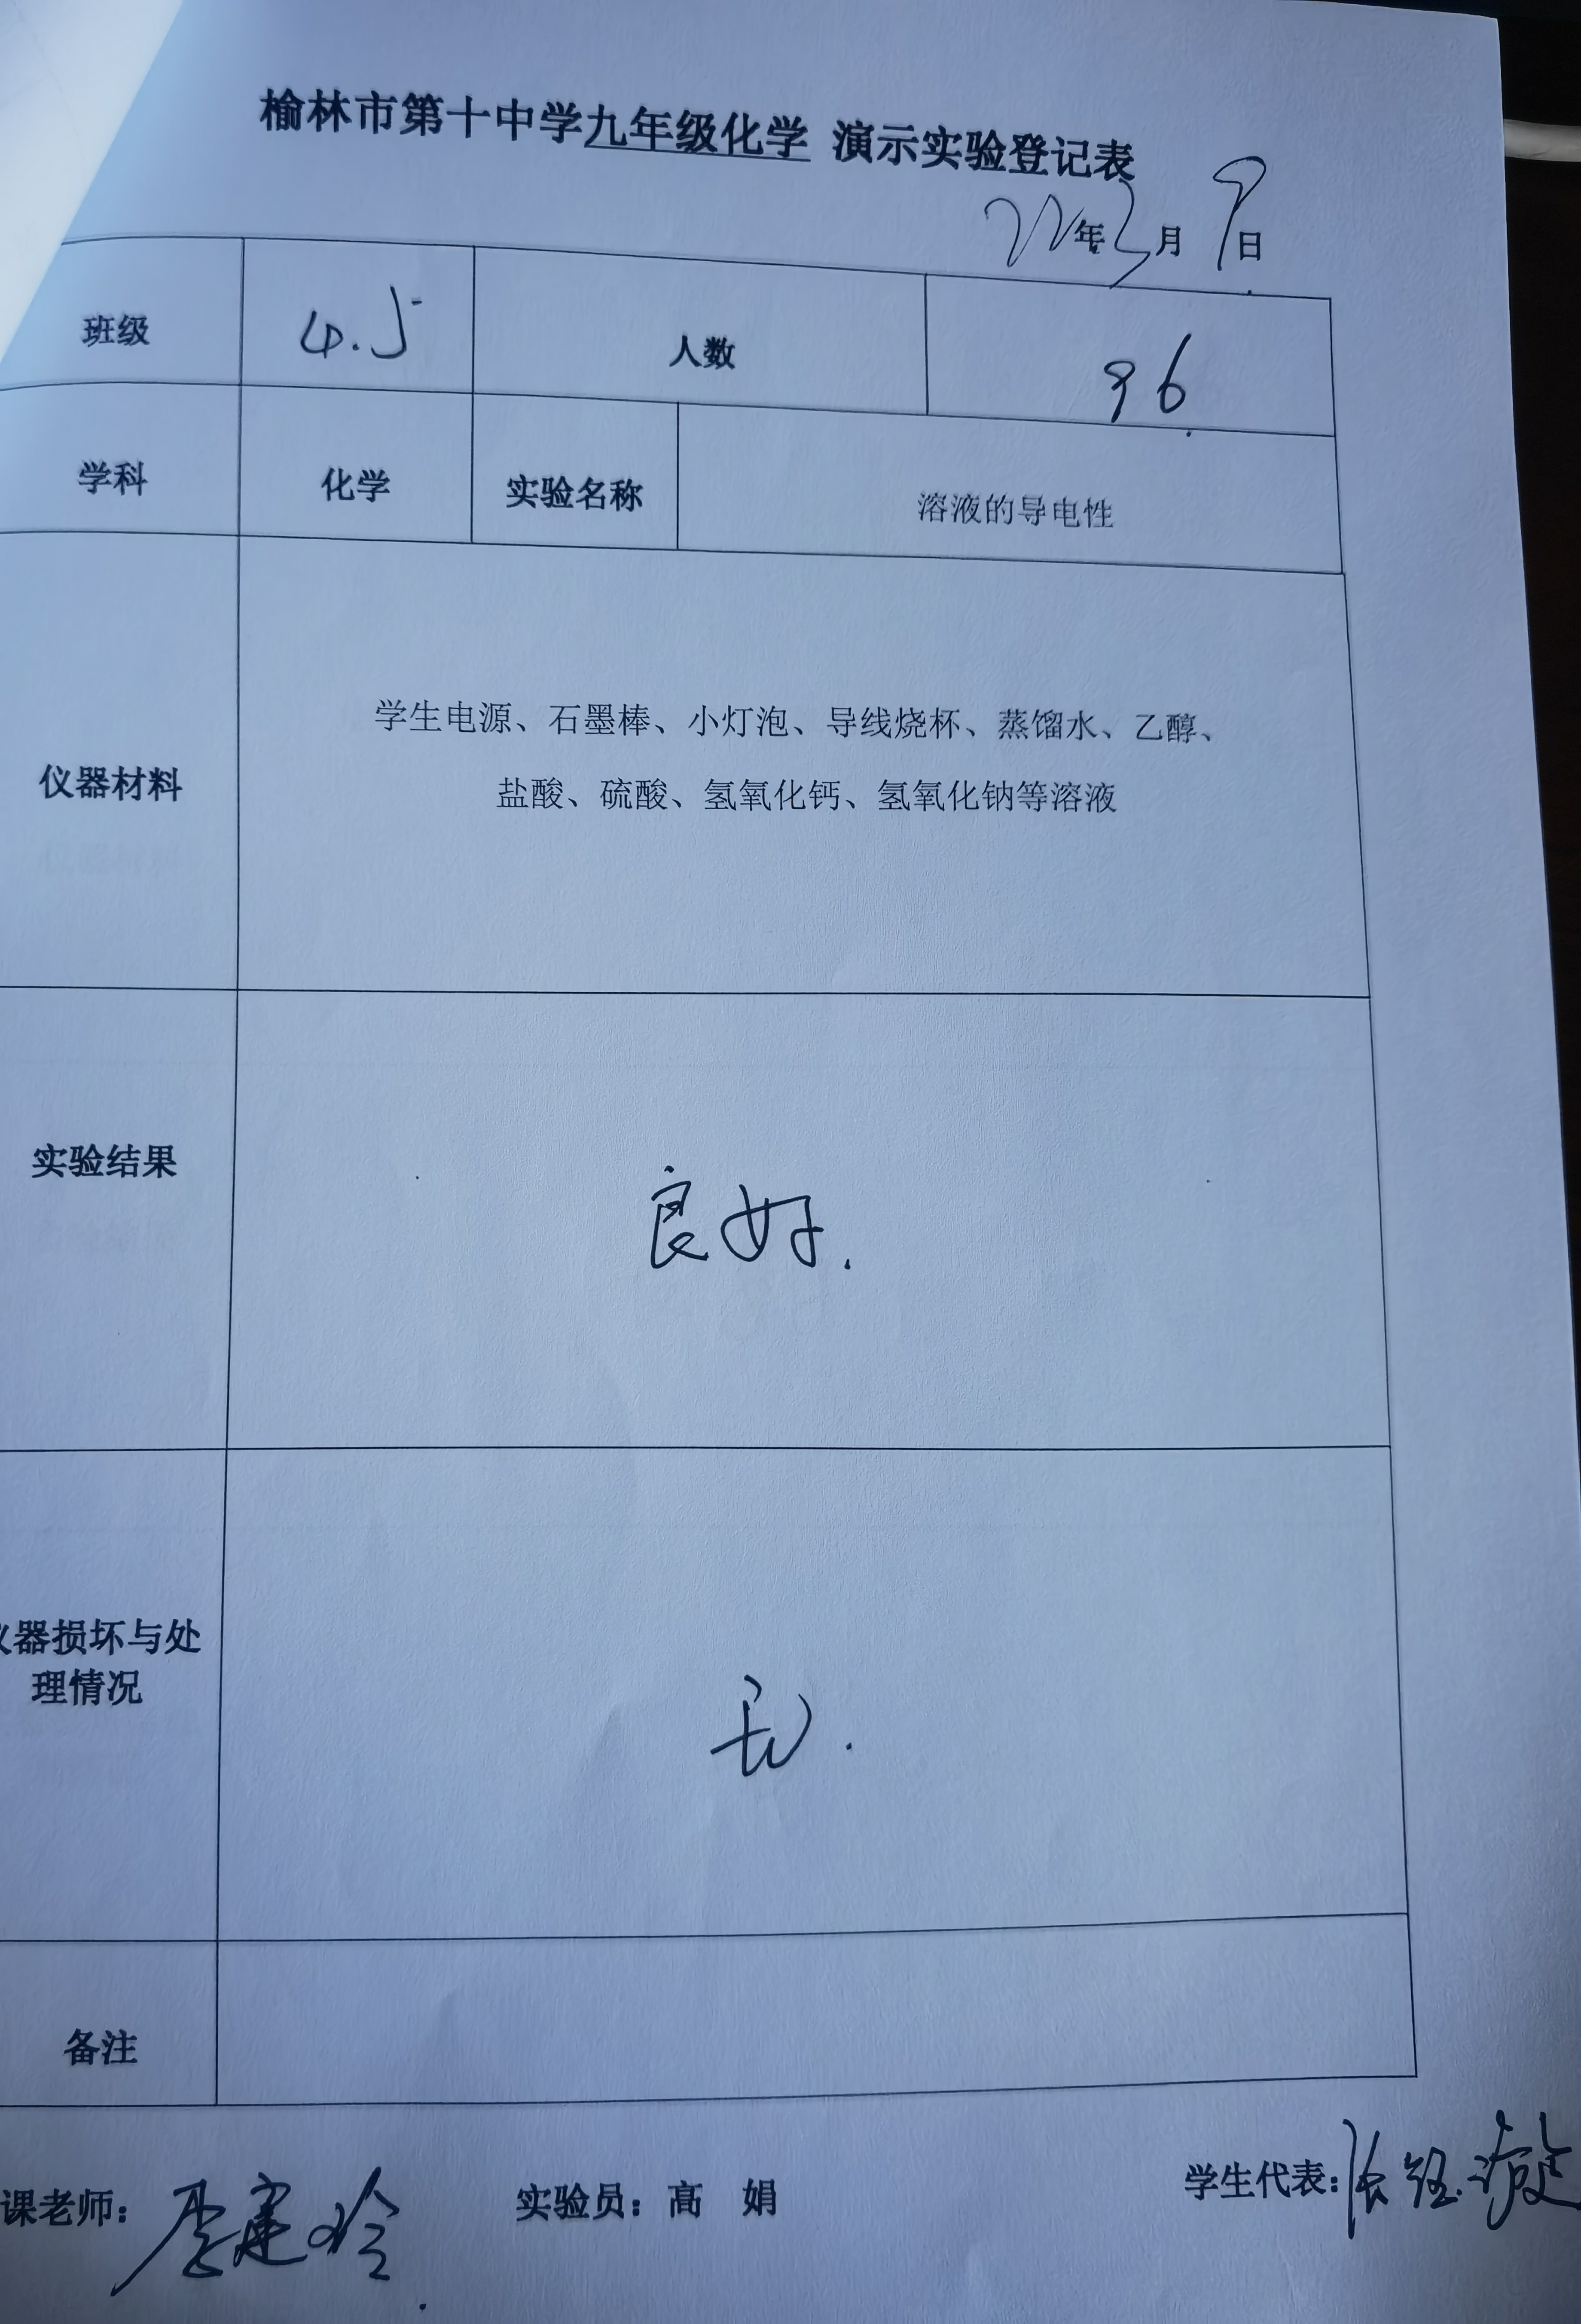 榆林市第十中学九年级化学 演示实验登记表
22年3月9日
班级 4.5 人数 96
学科 化学 实验名称 溶液的导电性
仪器材料
学生电源、石墨棒、小灯泡、导线烧杯、蒸馏水、乙醇、
盐酸、硫酸、氢氧化钙、氢氧化钠等溶液
实验结果 良好.
仪器损坏与处
理情况
无.
备注
课老师: 李建玲 实验员: 高 娟 学生代表: 张